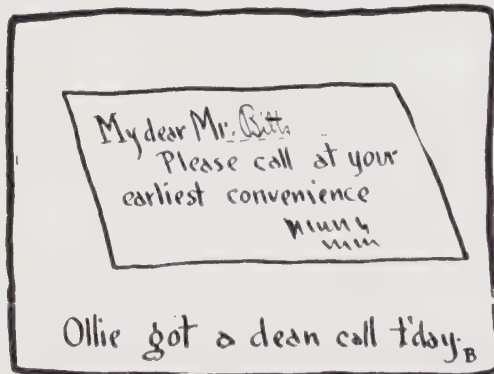 My dear Mr. Bitts
Please call at your
earliest convenience
Ollie got a dean call t'day.
B